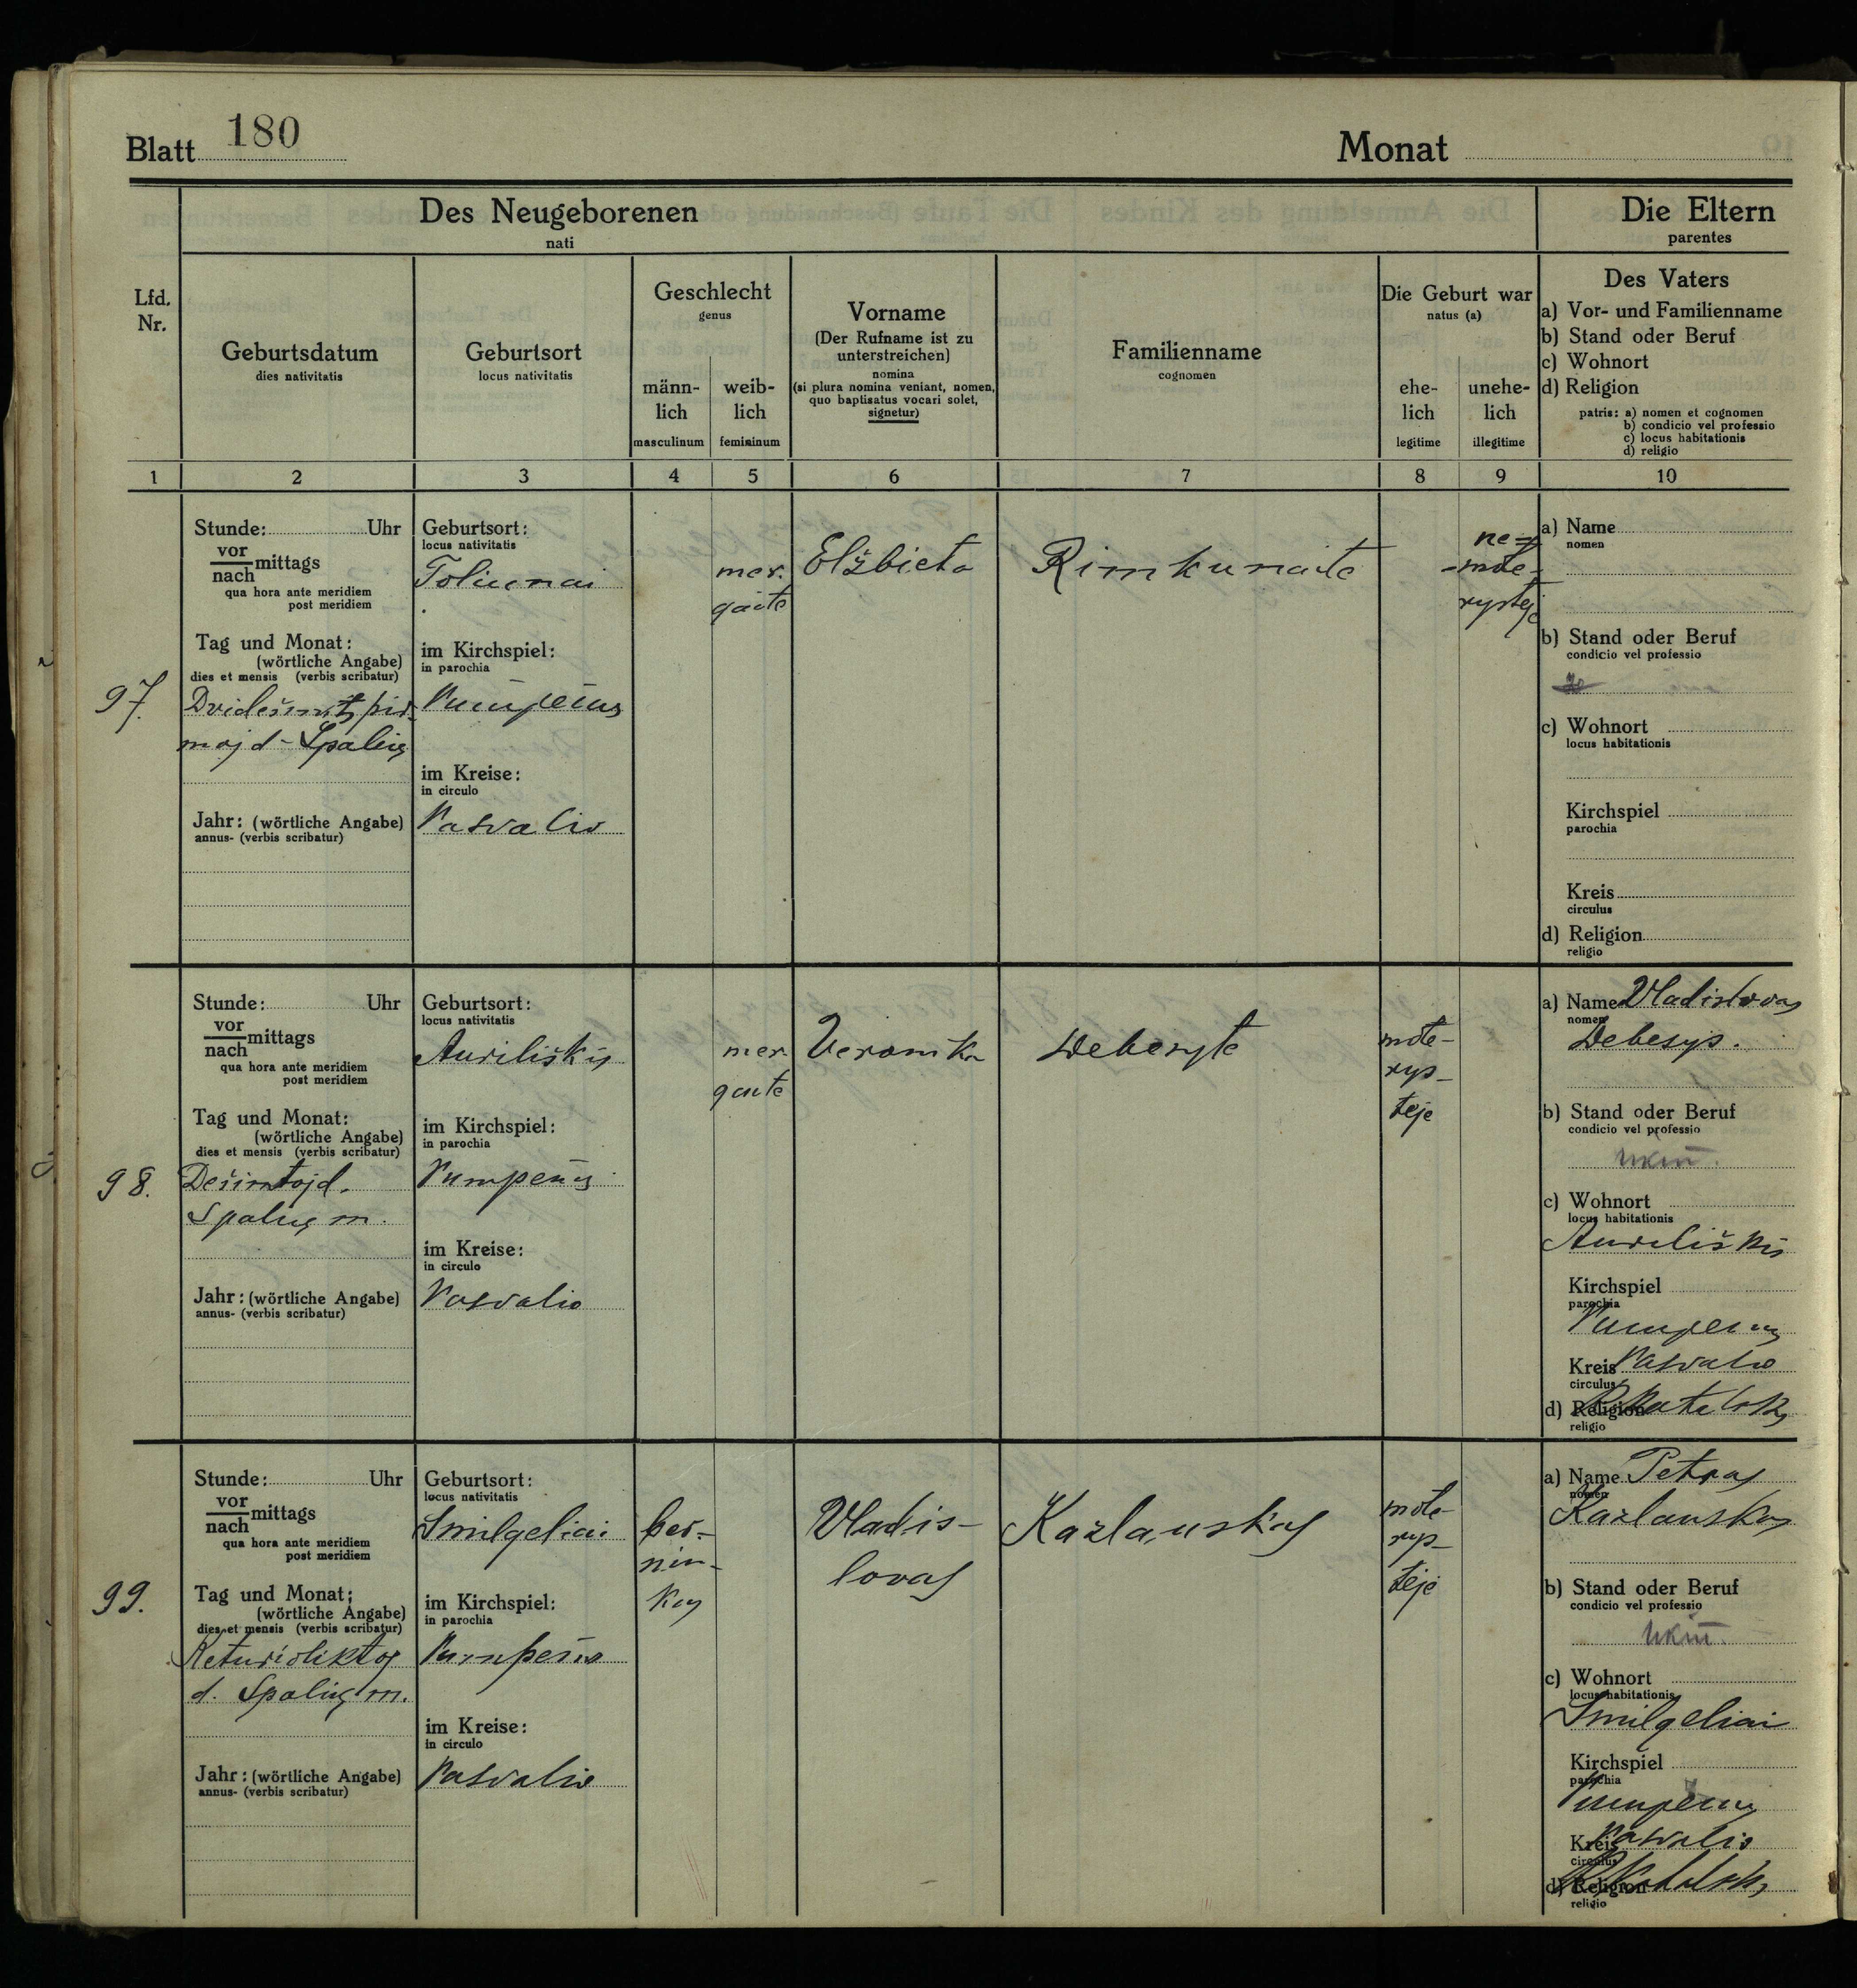 Blatt 180
Monat
Des Neugeborenen
nati
Die Eltern
parentes
Lfd. Nr.
Geburtsdatum
dies nativitatis
Geburtsort
locus nativitatis
Geschlecht
genus
männ-
lich
masculinum
weib-
lich
femininum
Vorname
(Der Rufname ist zu
unterstreichen)
nomina
(si plura nomina veniant, nomen,
quo baptisatus vocari solet,
signetur)
Familienname
cognomen
Die Geburt war
natus (a)
ehe-
lich
legitime
unehe-
lich
illegitime
Des Vaters
a) Vor- und Familienname
b) Stand oder Beruf
c) Wohnort
d) Religion
patris: a) nomen et cognomen
b) condicio vel professio
c) locus habitationis
d) religio
1 2 3 4 5 6 7 8 9 10
97.
Stunde: Uhr
vor
nach mittags
qua hora ante meridiem
post meridiem
Tag und Monat:
(wörtliche Angabe)
dies et mensis (verbis scribatur)
Dvidešimts pir-
moj d - Spalių
Jahr: (wörtliche Angabe)
annus- (verbis scribatur)
Geburtsort:
locus nativitatis
Toliunai
im Kirchspiel:
in parochia
Pumpėnų
im Kreise:
in circulo
Pasvalio
mer.
gaite
Elžbieta
Rimkunaite
ne=
-mote-
rystėj
a) Name
nomen
b) Stand oder Beruf
condicio vel professio
c) Wohnort
locus habitationis
Kirchspiel
parochia
Kreis
circulus
d) Religion
religio
98.
Stunde: Uhr
vor
nach mittags
qua hora ante meridiem
post meridiem
Tag und Monat:
(wörtliche Angabe)
dies et mensis (verbis scribatur)
Dešimtoj d.
Spalių m.
Jahr: (wörtliche Angabe)
annus- (verbis scribatur)
Geburtsort:
locus nativitatis
Auriliškių
im Kirchspiel:
in parochia
Pumpėnų
im Kreise:
in circulo
Pasvalio
mer
gaite
Veronika
Debesyte
mote-
rys-
teje
a) Name Vladislovas
nomen
Debesys.
b) Stand oder Beruf
condicio vel professio
ūkin.
c) Wohnort
locus habitationis
Auriliškių
Kirchspiel
parochia
Pumpėnų
Kreis Pasvalio
circulus
d) Religion R Katalikų
religio
99.
Stunde: Uhr
vor
nach mittags
qua hora ante meridiem
post meridiem
Tag und Monat:
(wörtliche Angabe)
dies et mensis (verbis scribatur)
Keturioliktoj
d. Spalių m.
Jahr: (wörtliche Angabe)
annus- (verbis scribatur)
Geburtsort:
locus nativitatis
Smilgeliai
im Kirchspiel:
in parochia
Pumpėnų
im Kreise:
in circulo
Pasvalio
ber-
nin-
kas
Vladis-
lovas
Kazlauskas
mote-
rys-
teje
a) Name Petras
nomen
Kazlauskas
b) Stand oder Beruf
condicio vel professio
ūkin.
c) Wohnort
locus habitationis
Smilgeliai
Kirchspiel
parochia
Pumpėnų
Kreis Pasvalio
circulus
d) Religion R Katalikų
religio